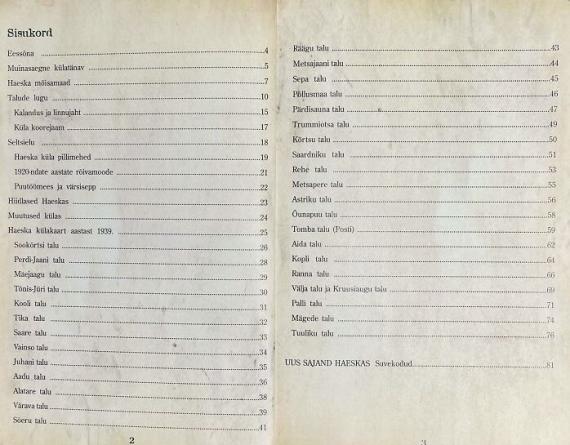 Sisukord
Eessõna 4
Muinasaegne külatänav 5
Haeska mõisamaad 7
Talude lugu 10
Kalandus ja linnujaht 15
Küla koorejaam 17
Seltsielu 18
Haeska küla pillimehed 19
1920-ndate aastate rõivamoode 21
Puutöömees ja värsisepp 22
Hiidlased Haeskas 23
Muutused külas 24
Haeska külakaart aastast 1939. 25
Sookõrtsi talu 26
Perdi-Jaani talu 28
Mäejaagu talu 29
Tõnis-Jüri talu 30
Kooli talu 31
Tika talu 32
Saare talu 33
Vainso talu 34
Juhani talu 35
Aadu talu 36
Alatare talu 38
Värava talu 39
Sõeru talu 41
2
Räägu talu 43
Metsajaani talu 44
Sepa talu 45
Põllusmaa talu 46
Pärdisauna talu 47
Trummiotsa talu 49
Kõrtsu talu 50
Saardniku talu 51
Rehe talu 53
Metsapere talu 55
Astriku talu 56
Õunapuu talu 58
Tomba talu (Posti) 59
Aida talu 62
Kopli talu 64
Ranna talu 66
Välja talu ja Kruusiangu talu 69
Palli talu 71
Mägede talu 74
Tuuliku talu 76
UUS SAJAND HAESKAS Suvekodud 81
3